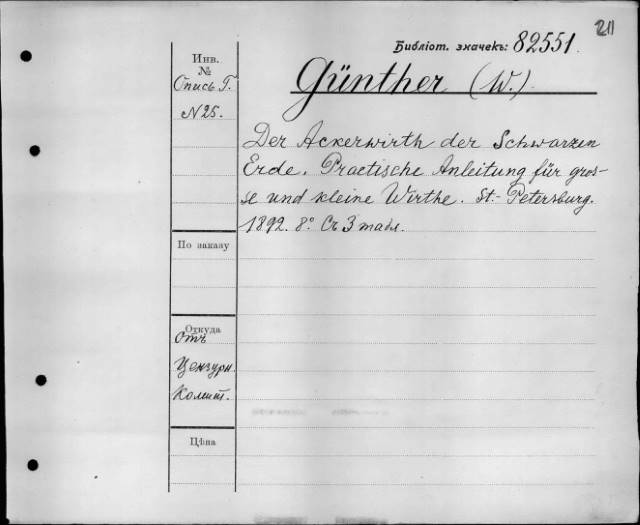 211
Библіот. значекъ: 82551.
Инв.
№
Günther (W.)
Опись Г.
N 25.
Der Ackerwirth der Schwarzen
Erde. Practische Anleitung für gros-
se und kleine Wirthe. St.-Petersburg.
1892. 8° Съ 3 табл.
По заказу
Откуда
Отъ
Цензурн.
Комит.
Цѣна